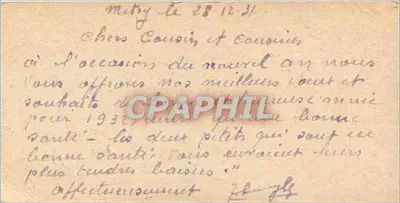 Mitry le 28-12-31
Chers Cousins et Cousines
à l'occasion du nouvel an nous
vous offrons nos meilleurs vœux et
souhaits de heureuse année
pour 1932 bonne
santé - les deux petits qui sont en
bonne santé vous envoient leurs
plus tendres baisers."
affectueusement
CPAPHIL